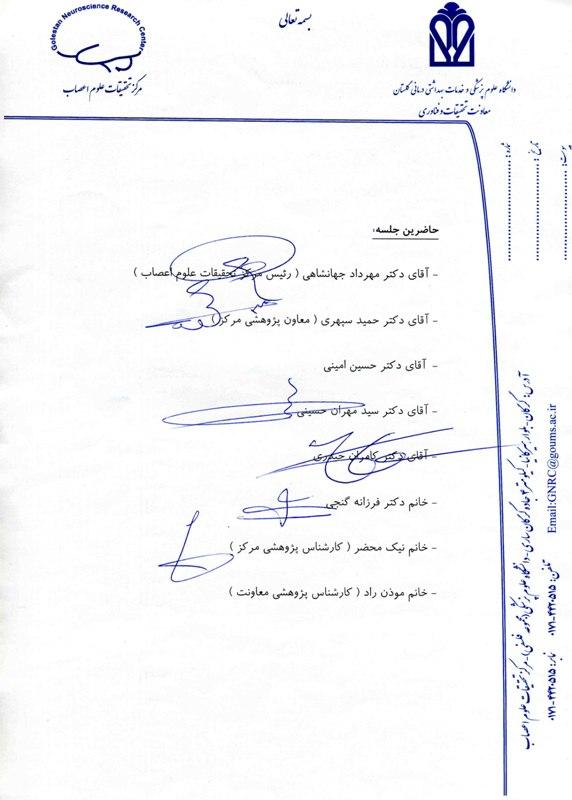 بسمه تعالی
Golestan Neuroscience Research Center
مرکز تحقیقات علوم اعصاب
دانشگاه علوم پزشکی و خدمات بهداشتی درمانی گلستان
معاونت تحقیقات و فناوری
شماره:
تاریخ:
پیوست:
حاضرین جلسه:
- آقای دکتر مهرداد جهانشاهی ( رئیس مرکز تحقیقات علوم اعصاب )
- آقای دکتر حمید سپهری ( معاون پژوهشی مرکز )
- آقای دکتر حسین امینی
- آقای دکتر سید مهران حسینی
- آقای دکتر کامران حیدری
- خانم دکتر فرزانه گنجی
- خانم نیک محضر ( کارشناس پژوهشی مرکز )
- خانم موذن راد ( کارشناس پژوهشی معاونت )
آدرس: گرگان- بلوار هیرکانیا- کیلومتر ۲ جاده گرگان ساری- دانشگاه علوم پزشکی (مجموعه فلسفی)- مرکز تحقیقات علوم اعصاب
تلفن: ۴۴۲۰۵۱۵-۰۱۷۱ نمابر: ۴۴۲۰۵۱۵-۰۱۷۱
Email:GNRC@goums.ac.ir